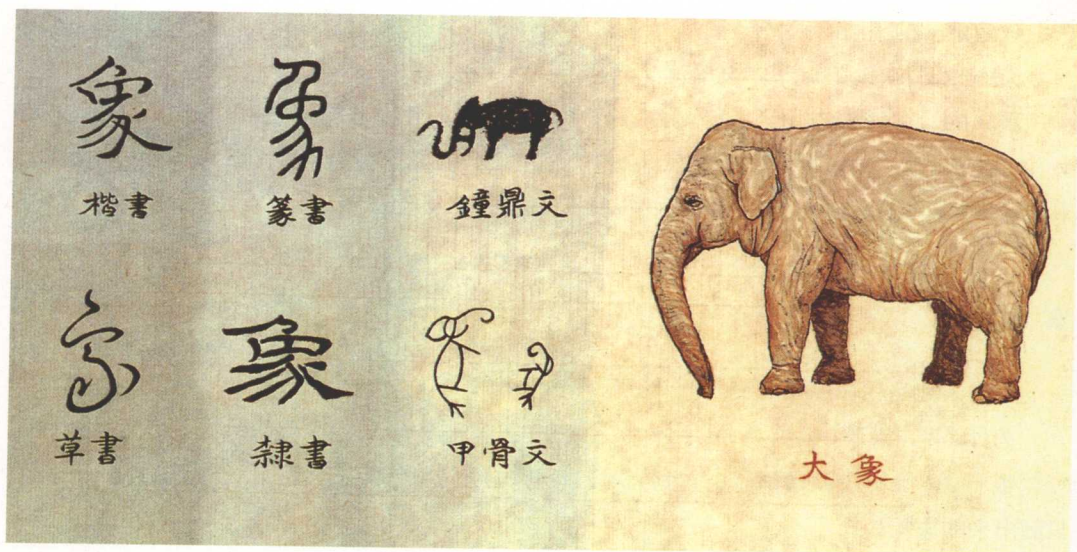 象
楷書
象
篆書
象
鐘鼎文
象
草書
象
隸書
象
甲骨文
大象